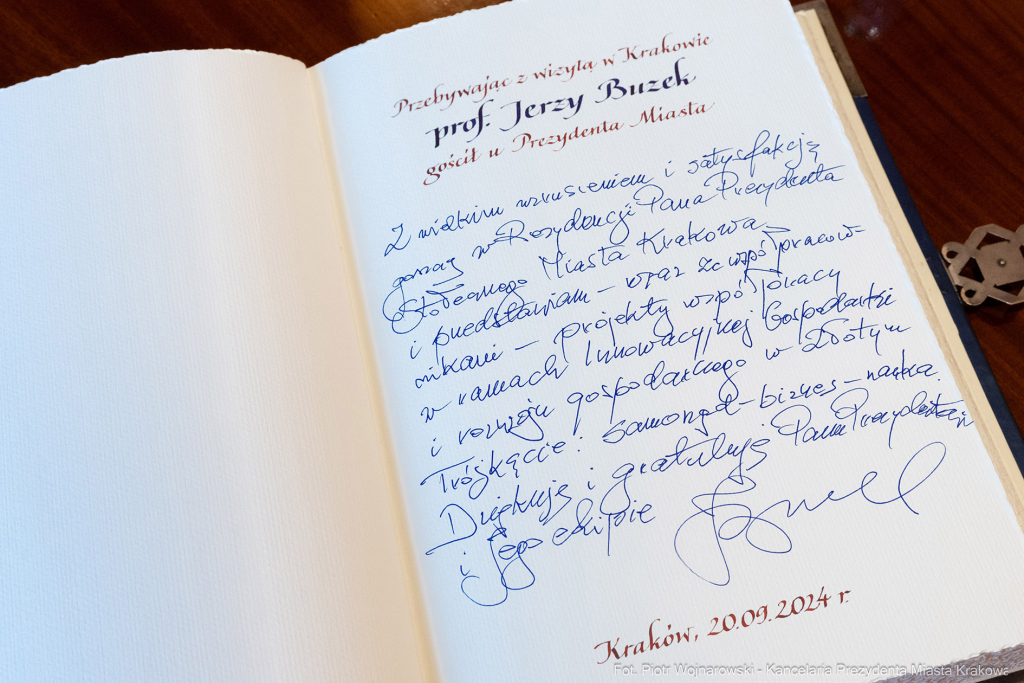 Przebywając z wizytą w Krakowie
prof. Jerzy Buzek
gościł u Prezydenta Miasta
Z wielkim wzruszeniem i satysfakcją
goszczę w Rezydencji Pana Prezydenta
Stołecznego Miasta Krakowa
i przedstawiam – wraz ze współpracow-
nikami – projekty współpracy
w ramach Innowacyjnej Gospodarki
i rozwoju gospodarczego w Złotym
Trójkącie: samorząd–biznes–nauka.
Dziękuję i gratuluję Panu Prezydentowi
i Jego ekipie
Kraków, 20.09.2024 r.
Fot. Piotr Wojnarowski - Kancelaria Prezydenta Miasta Krakowa